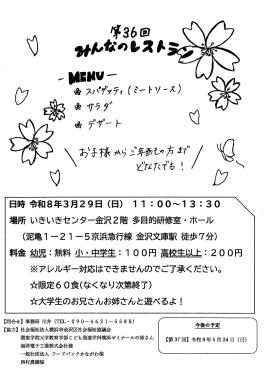 第36回
みんなのレストラン
ーMENUー
スパゲッティ(ミートソース)
サラダ
デザート
お子様からご年配の方まで
どなたでも!
日時 令和8年3月29日(日) 11:00~13:30
場所 いきいきセンター金沢2階 多目的研修室・ホール
(泥亀1-21-5京浜急行線 金沢文庫駅 徒歩7分)
料金 幼児:無料 小・中学生:100円 高校生以上:200円
※アレルギー対応はできませんのでご了承ください。
☆限定60食(なくなり次第終了)
☆大学生のお兄さんお姉さんと遊べるよ!
【問合せ】事務局 川井(TEL・090-4621-5588)
【協力】社会福祉法人横浜市金沢区社会福祉協議会
関東学院大学教育学部こども発達学科横浜ゼミナールの皆さん
海洋電子工業株式会社
一般社団法人 フードバンクかながわ様
西村農園様
今後の予定
【第37回】令和8年5月24日(日)